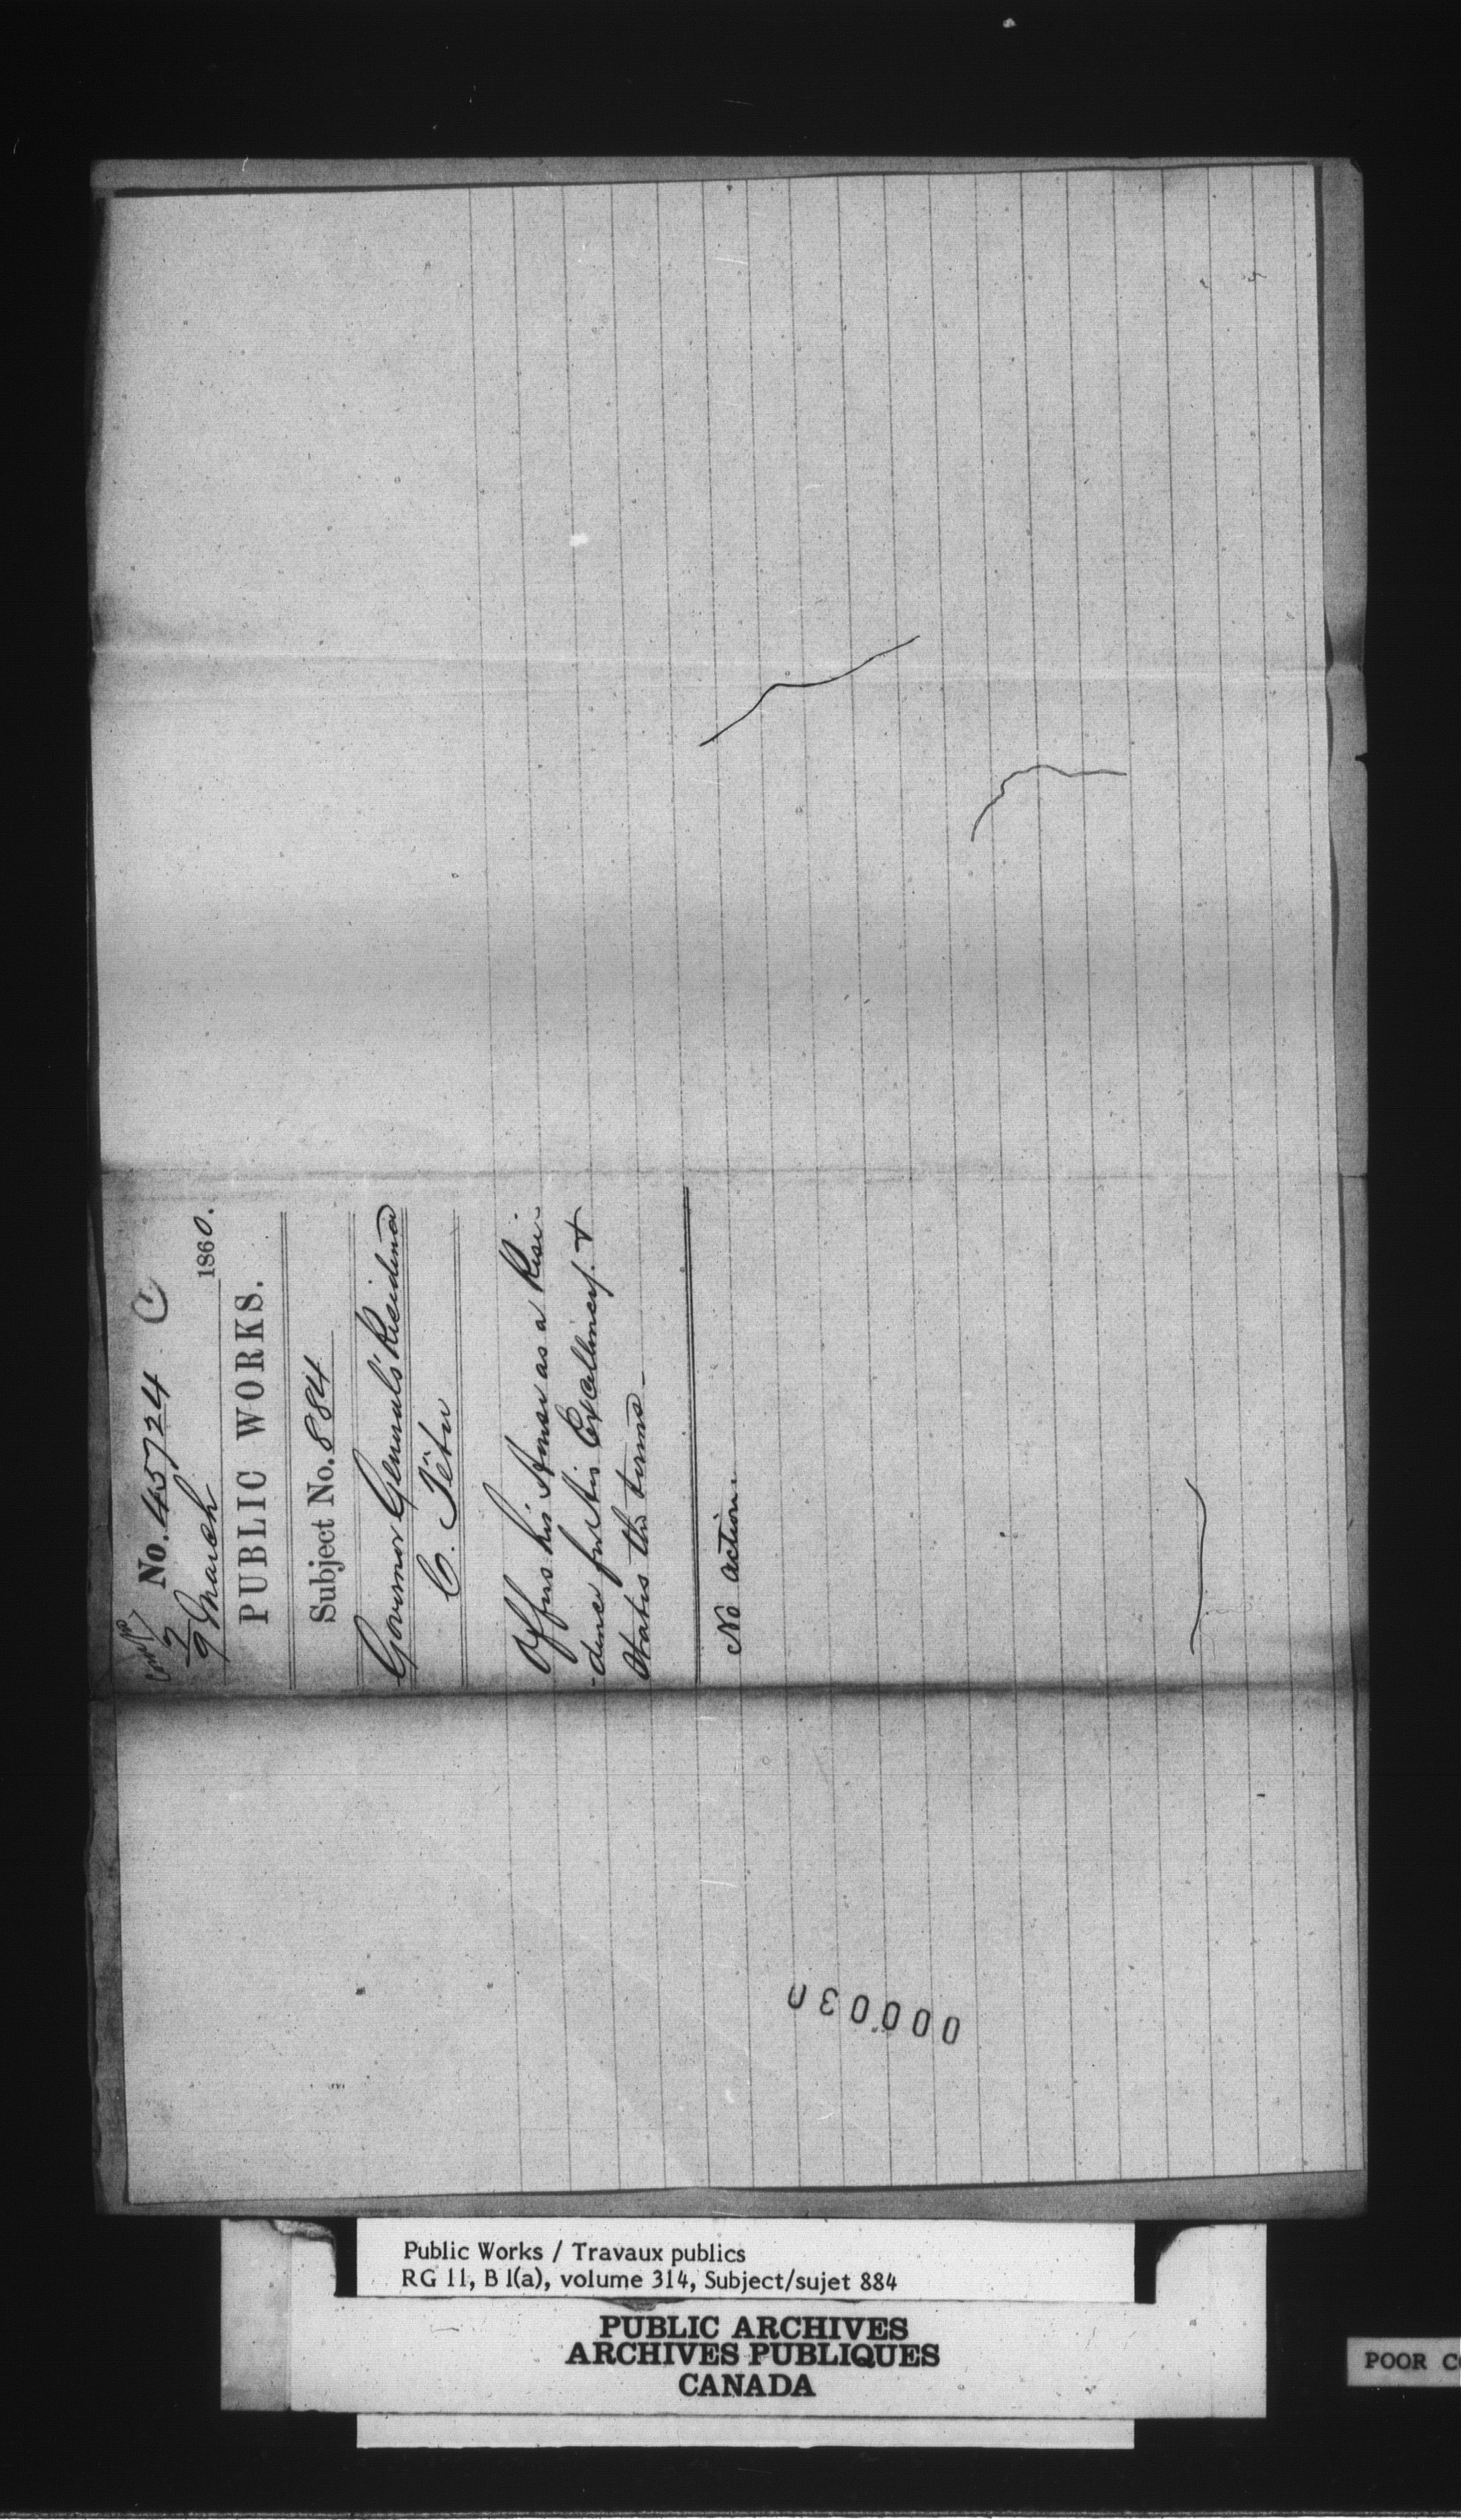 No. 45724
9 March 1860.
PUBLIC WORKS.
Subject No. 884
Governor General's Residence
C. Têtu
Offers his House as a Resi-
-dence for His Excellency. &
States the terms -
No action.
000030
Public Works / Travaux publics
RG 11, B 1(a), volume 314, Subject/sujet 884
PUBLIC ARCHIVES
ARCHIVES PUBLIQUES
CANADA
POOR